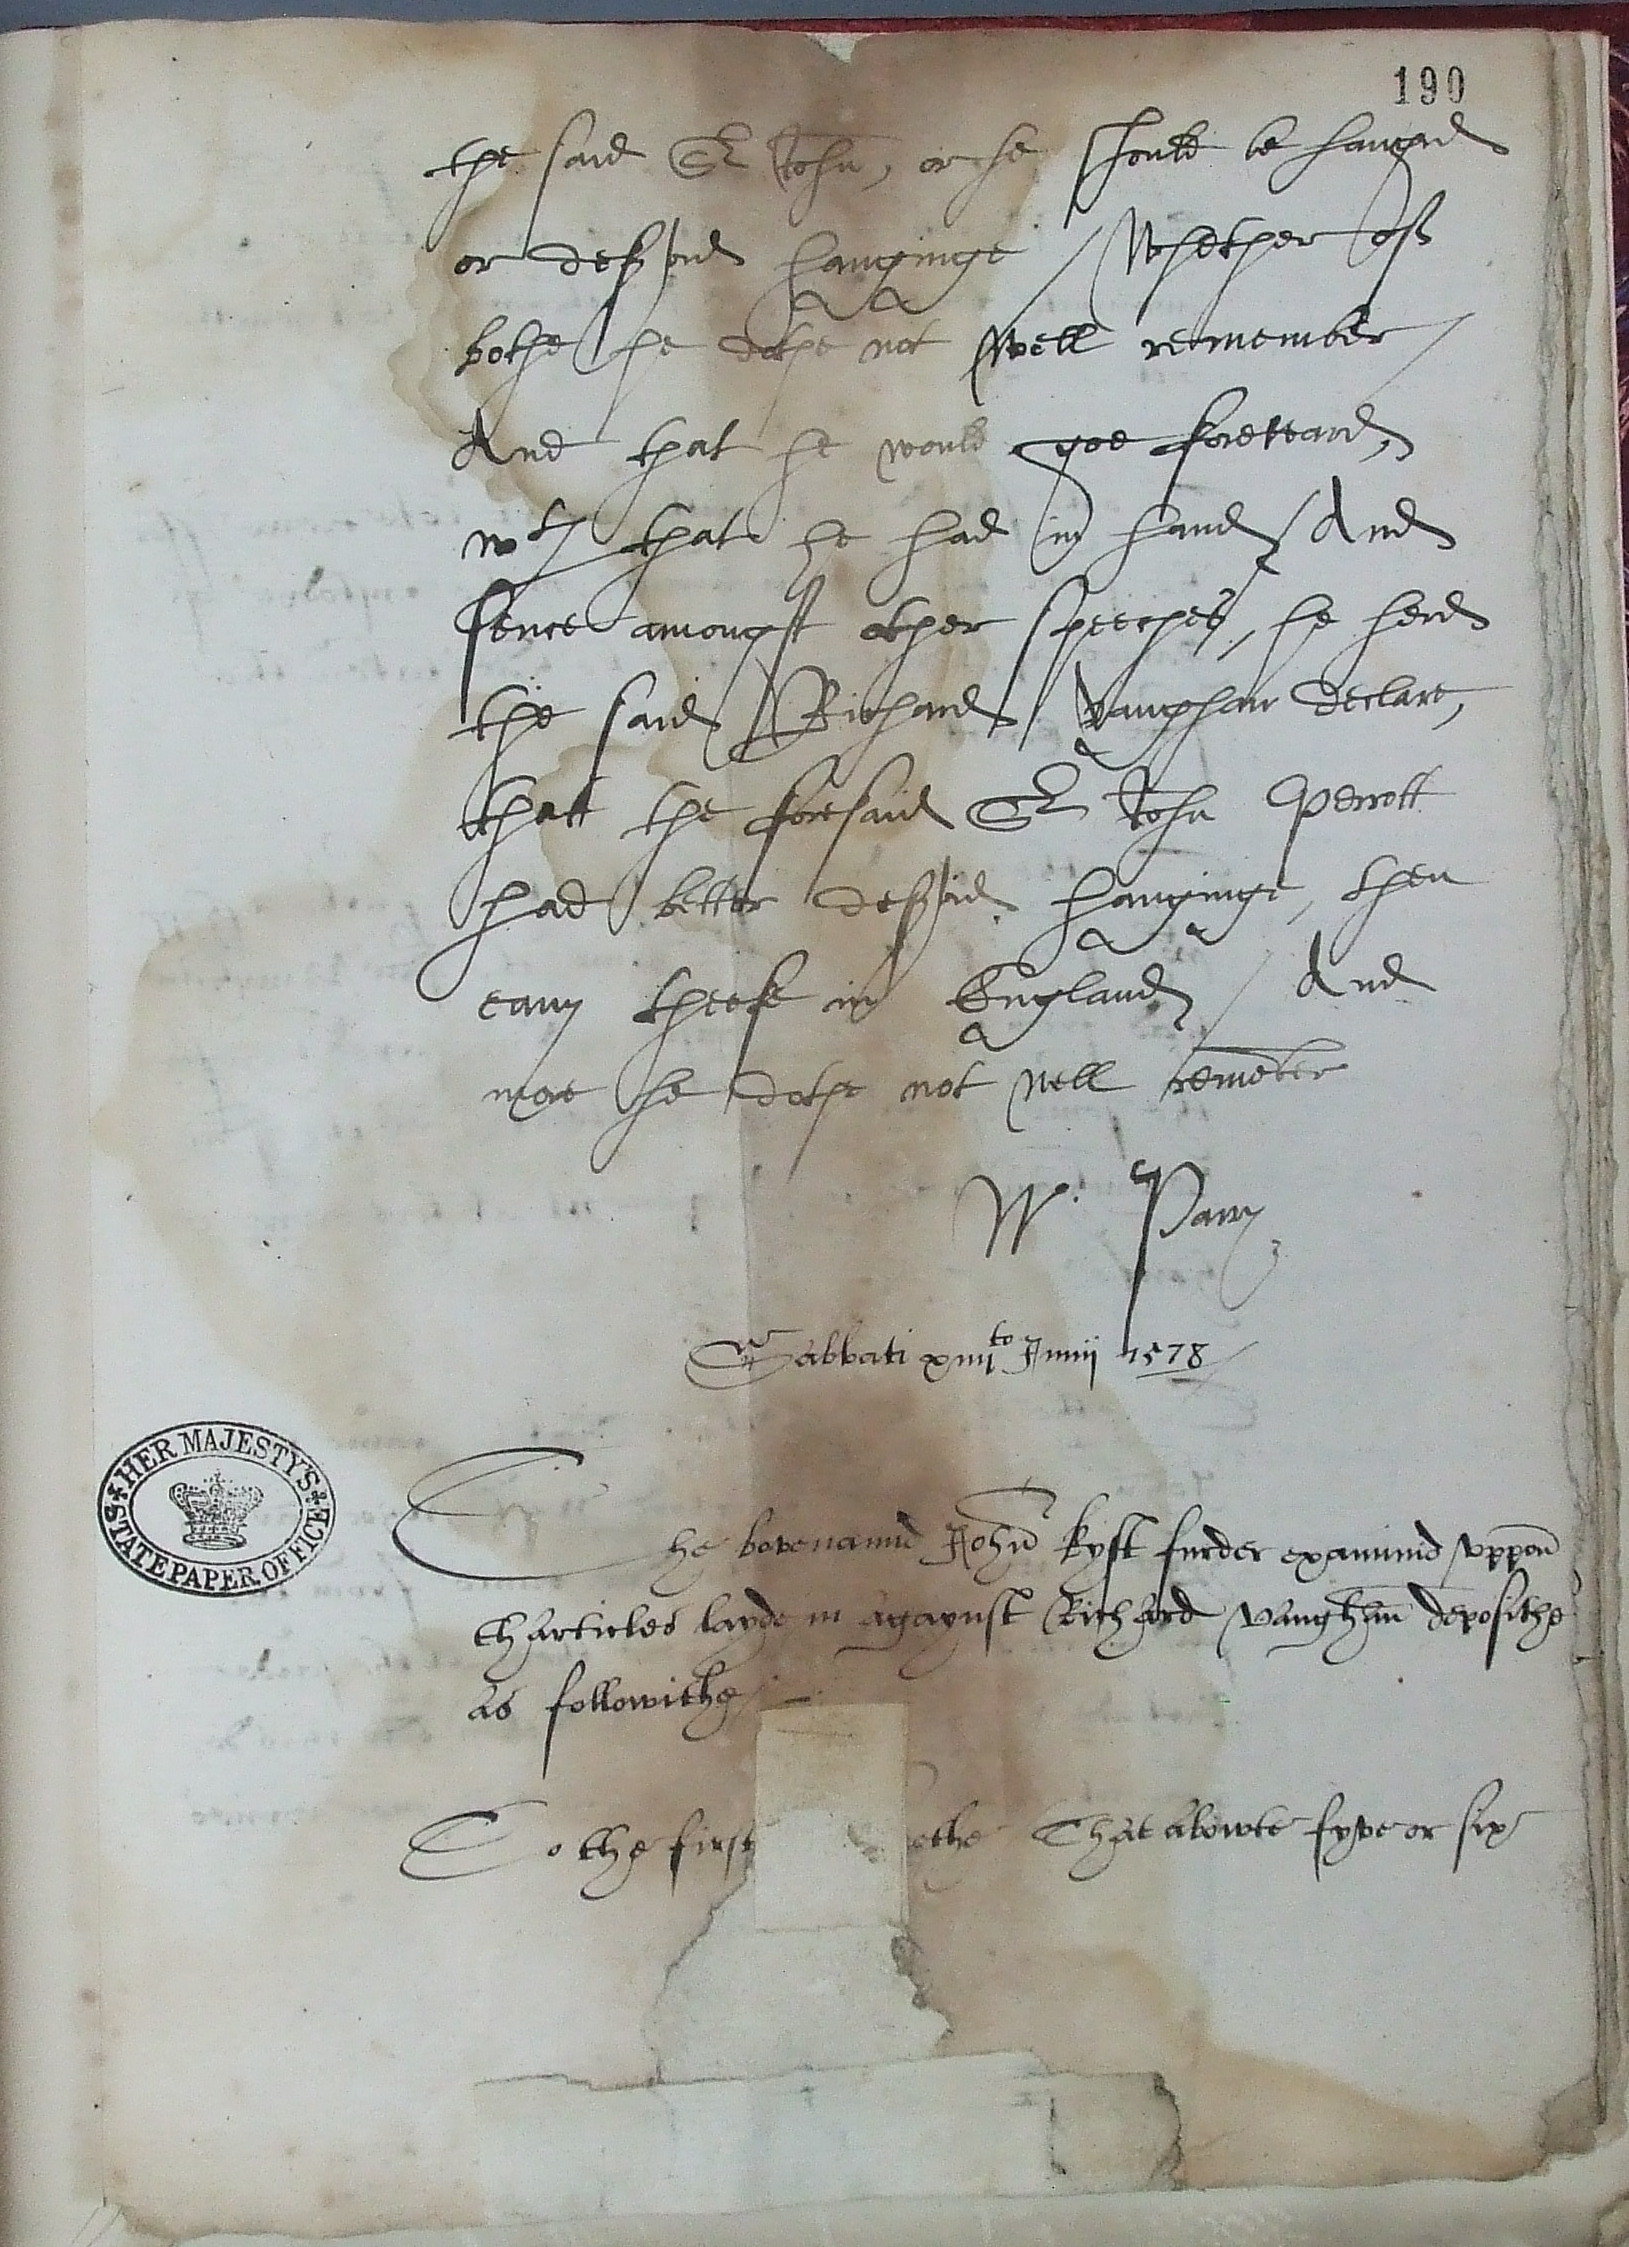 190
the said Sr John, or he should be hangid
or deservid hanginge / Whether of
bothe he dothe not well remember /
And that he would goe foreward,
wth that he had in hand / And
sence amongst other speeches, he herd
the said Richard Vaughan declare,
thatt the foresaid Sr John Perrott
had better deservid hanginge, then
eany theefe in England / And
more he dothe not well remēber
W. Parry
Sabbati xiiijto Junij 1578
The bovenamid John Kyft furder examinid uppon
tharticles layde in agaynst Richard Vaughan deposithe
as followithe
To the first ethe That abowte fyve or six
HER MAJESTY'S
STATE PAPER OFFICE